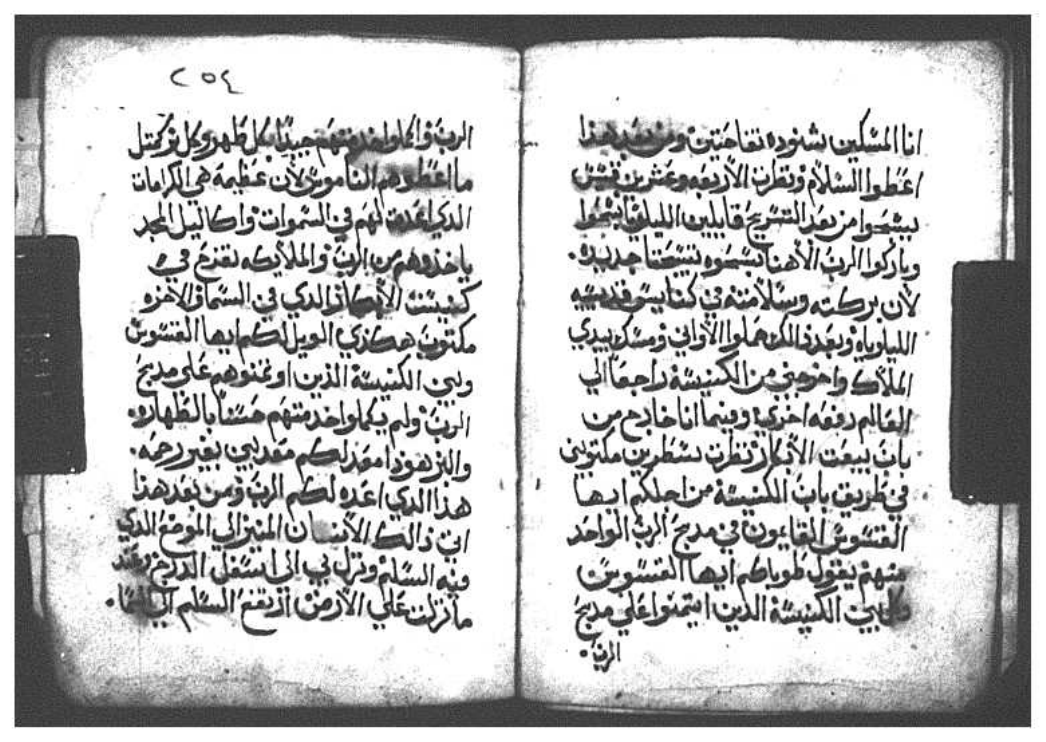 انا المسكين بشنوده تفاحتين ومن بعد هذا
اعطوا السلام ونظرت الأربعه وعشرين قسيس
يسبحوا من بعد التسريح قايلين الليلويا نسبحوا
وباركوا الرب الأهنا نسبحوه تسبحتا جديده.
لأن بركته وسلامته في كنايس قديسيه
الليلوياه وبعد ذالك حملوا الأواني ومسك بيدي
الملاك واخرجني من الكنيسة راجعا الي
العالم دفعه اخري وفيما انا خارج من
باب بيعت الأبكار نظرت سطرين مكتوبين
في طريق باب الكنيسة من اجلكم ايها
القسوس القايمون في مدبح الرب الواحد
منهم يقول طوباكم ايها القسوس
وكهايت الكنيسة الذين ايتمنوا علي مدبح
الرب.
٢٥٤
الرب واكملوا خدمتهم جيدا بكل طهر وكل ترتيل
ما اعطوهم الناموس لأن عظيمه هي الكرامات
الذي اعدت لهم في السموات واكاليل المجد
ياخدوهم من الرب والملايكه تقدم في
كنيست الأبكار الذي في السما والأخره
مكتوب هكذي الويل لكم ايها القسوس
وليي الكنيسة الذين اوتمنوهم علي مدبح
الرب ولم يكملوا خدمتهم حسنا بالطهاره.
واليزهودا معد لكم معدلين بغير رحمه.
هذا الذي اعده لكم الرب ومن بعد هذا
اتي ذالك الأنسان المنير الي الموضع الذي
فيه السلم ونزل بي الي اسفل الدرج وعند
ما نزلت علي الأرض ارتفع السلم الي السما.